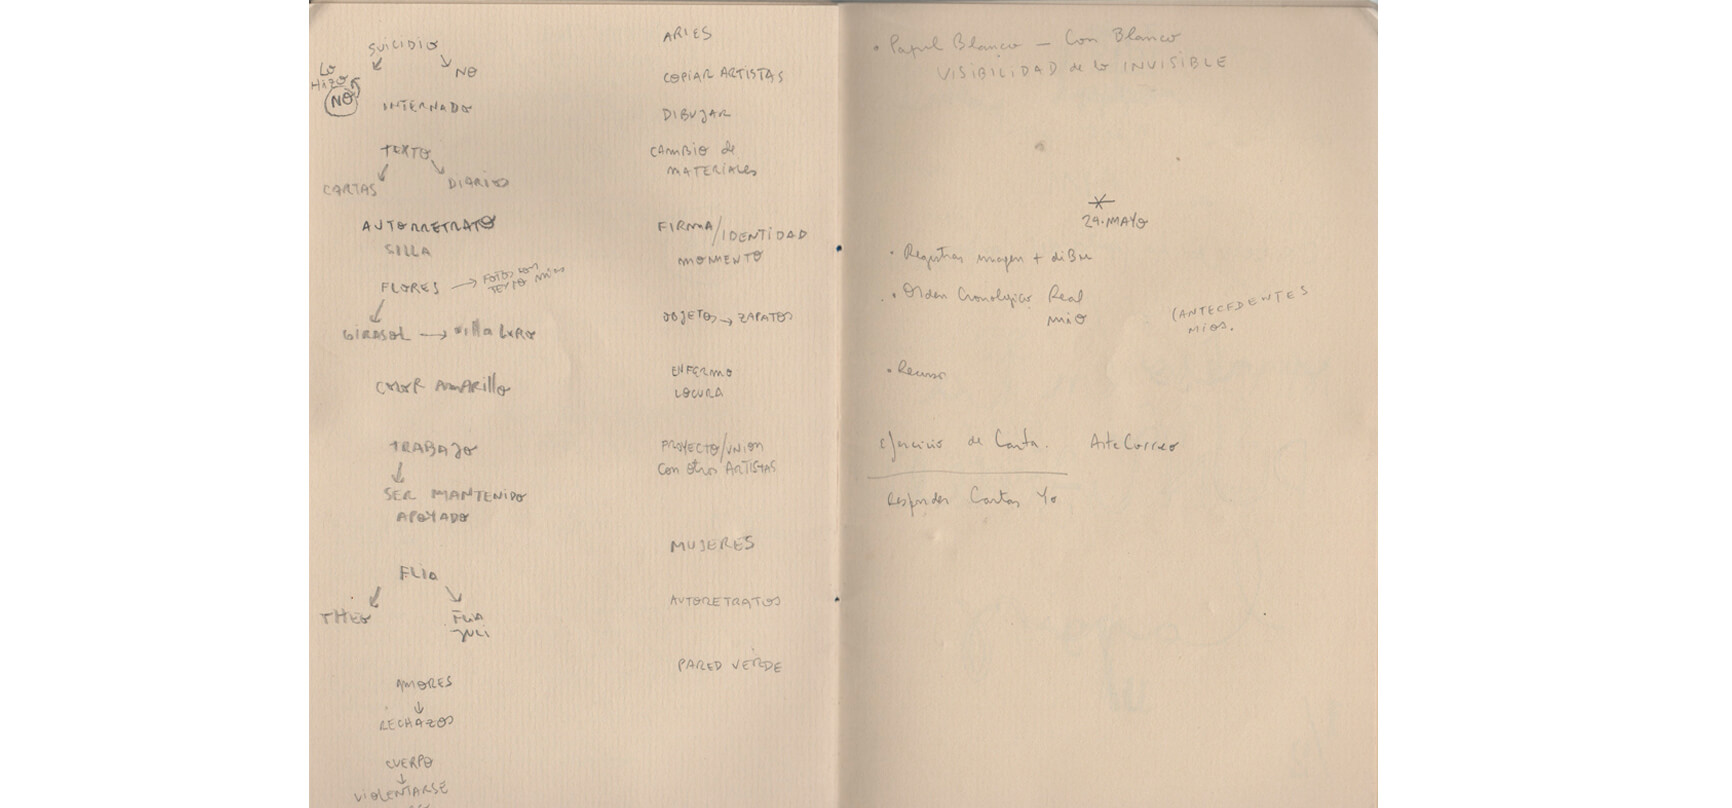 SUICIDIO
LO
HIZO
NO
NO
INTERNADO
TEXTO
CARTAS
DIARIOS
AUTORRETRATO
SILLA
FLORES → FOTOS CON
TEXTO MIOS
GIRASOL → silla LURO
COLOR AMARILLO
TRABAJO
SER MANTENIDO
APOYADO
FLIA
THEO
FLIA
JULI
AMORES
RECHAZOS
CUERPO
VIOLENTARSE
ARIES
COPIAR ARTISTAS
DIBUJAR
CAMBIO de
MATERIALES
FIRMA/IDENTIDAD
MOMENTO
OBJETOS → ZAPATOS
ENFERMO
LOCURA
PROYECTO/UNION
con otros ARTISTAS
MUJERES
AUTORETRATOS
PARED VERDE
• Papel Blanco — Con Blanco
VISIBILIDAD de lo INVISIBLE
29.MAYO
• Registrar imagen +
• Orden Cronologico Real
mio
(ANTECEDENTES
MIOS.
•
Ejercicio de Carta. Arte Correo
Responder Cartas Yo